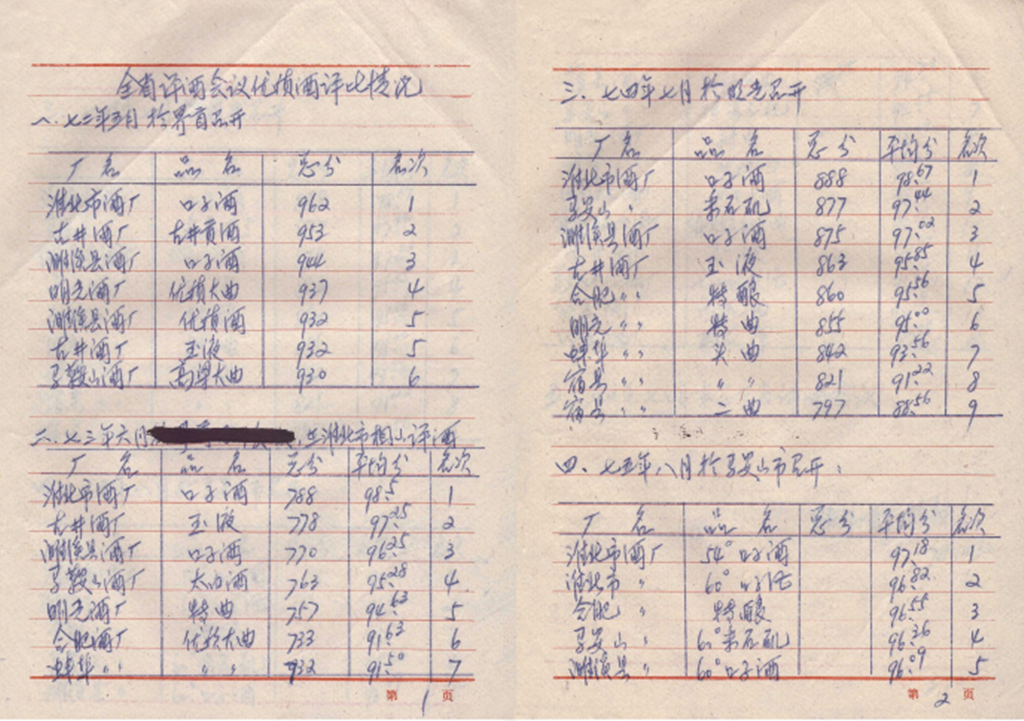 全省评酒会议优损酒评比情况
一、七二年三月於界首召开
厂名 品名 总分 名次
淮北市酒厂 口子酒 962 1
古井酒厂 古井贡酒 953 2
濉溪县酒厂 口子酒 944 3
明光酒厂 优损大曲 937 4
濉溪县酒厂 优损酒 932 5
古井酒厂 玉液 932 5
马鞍山酒厂 高粱大曲 930 6
二、七三年六月 在淮北市相山评酒
厂名 品名 总分 平均分 名次
淮北市酒厂 口子酒 788 98.5 1
古井酒厂 玉液 778 97.25 2
濉溪县酒厂 口子酒 770 96.25 3
马鞍山酒厂 太白酒 763 95.28 4
明光酒厂 特曲 757 94.63 5
合肥酒厂 优损大曲 733 91.63 6
蚌埠〃〃 〃〃 932 91.50 7
第1页
三、七四年七月於明光召开
厂名 品名 总分 平均分 名次
淮北市酒厂 口子酒 888 98.67 1
马安山〃 采石矶 877 97.44 2
濉溪县酒厂 口子酒 875 97.02 3
古井酒厂 玉液 863 95.85 4
合肥〃〃 特酿 860 95.56 5
明光〃〃 特曲 855 95.00 6
蚌埠〃〃 头曲 842 93.56 7
宿县〃〃 〃〃 821 91.22 8
宿县〃〃 二曲 797 88.56 9
四、七五年八月於马安山市召开：
厂名 品名 总分 平均分 名次
淮北市酒厂 54°口子酒 97.18 1
淮北市〃 60°口子酒 96.82 2
合肥〃 特酿 96.55 3
马安山〃 60°采石矶 96.36 4
濉溪县〃 60°口子酒 96.09 5
第2页